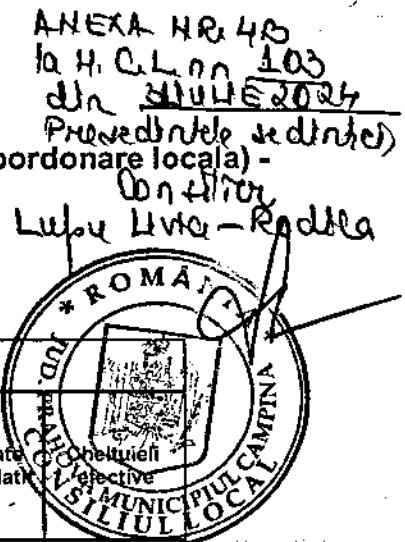 ANEXA NR. 4B
la H.C.L. nr. 103
din IULIE 2024
Președintele ședinței
bordonare locala) -
Consilier
Lupu Livia - Rodica
* ROMÂNIA *
JUD. PRAHOVA MUNICIPIUL CAMPINA
CONSILIUL LOCAL
Cheltuieli
efective